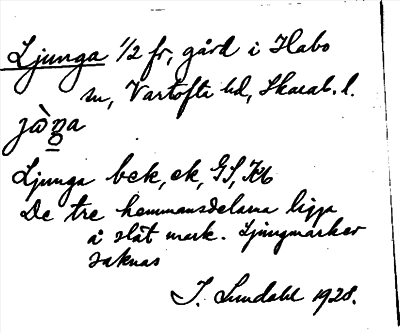 Ljunga 1/2 fr, gård i Habo
sn, Vartofta hd, Skarab. l.
jòṉa
Ljunga bek, ek, GS, Kb
De tre hemmansdelarna ligga
å slät mark. Ljungmarker
saknas
I. Lundahl 1928.